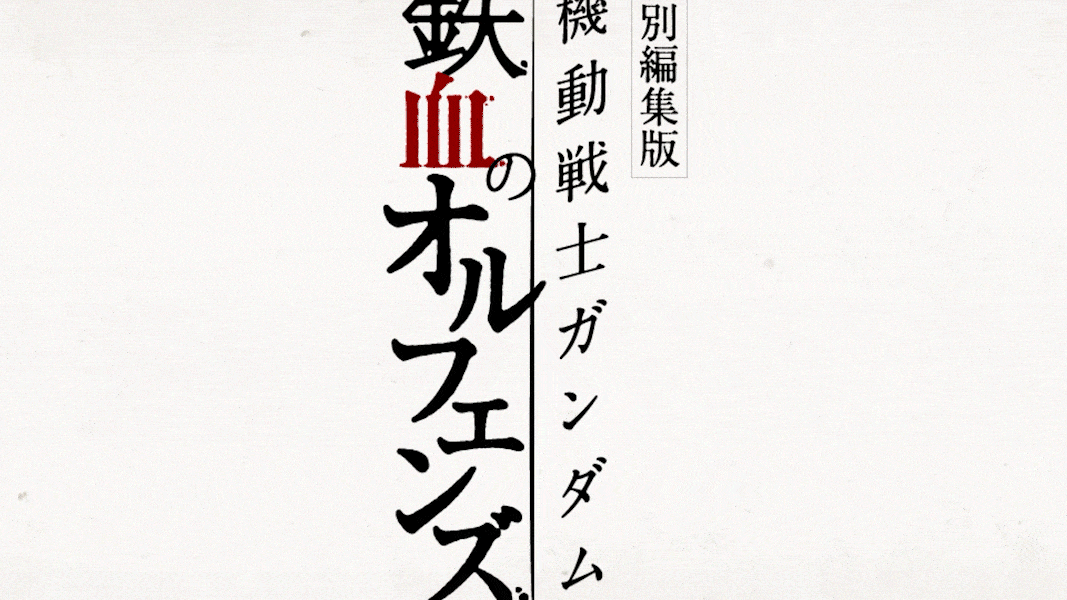 別編集版
機動戦士ガンダム
鉄血のオルフェンズ